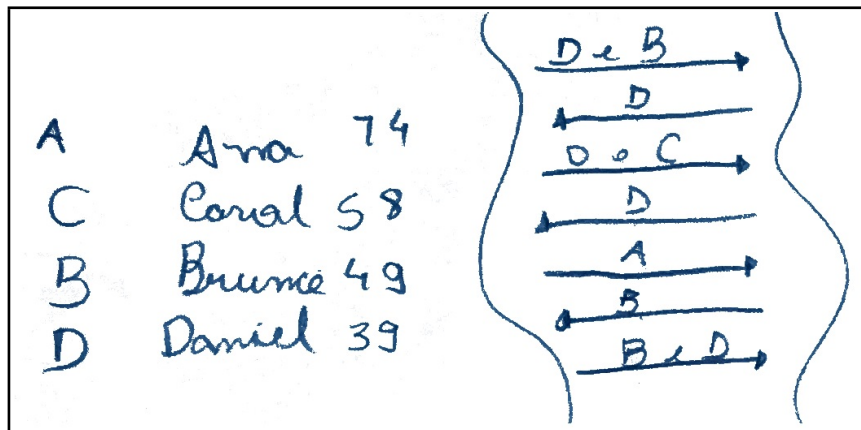 A Ana 74
C Coral 58
B Brune 49
D Daniel 39
D e B
D
D e C
D
A
B
B e D